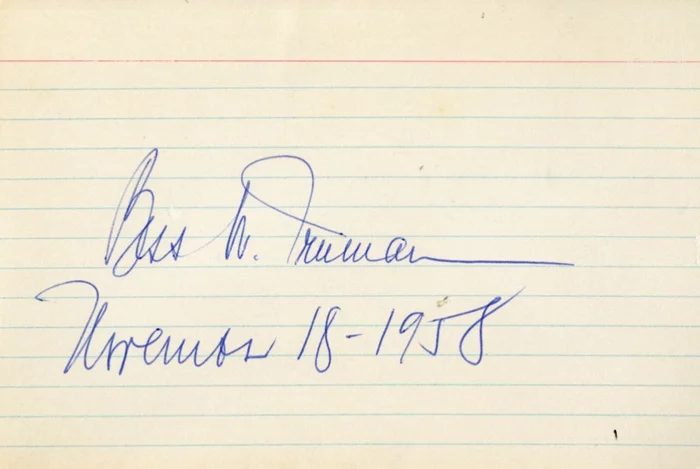 Bess W. Truman
November 18-1958